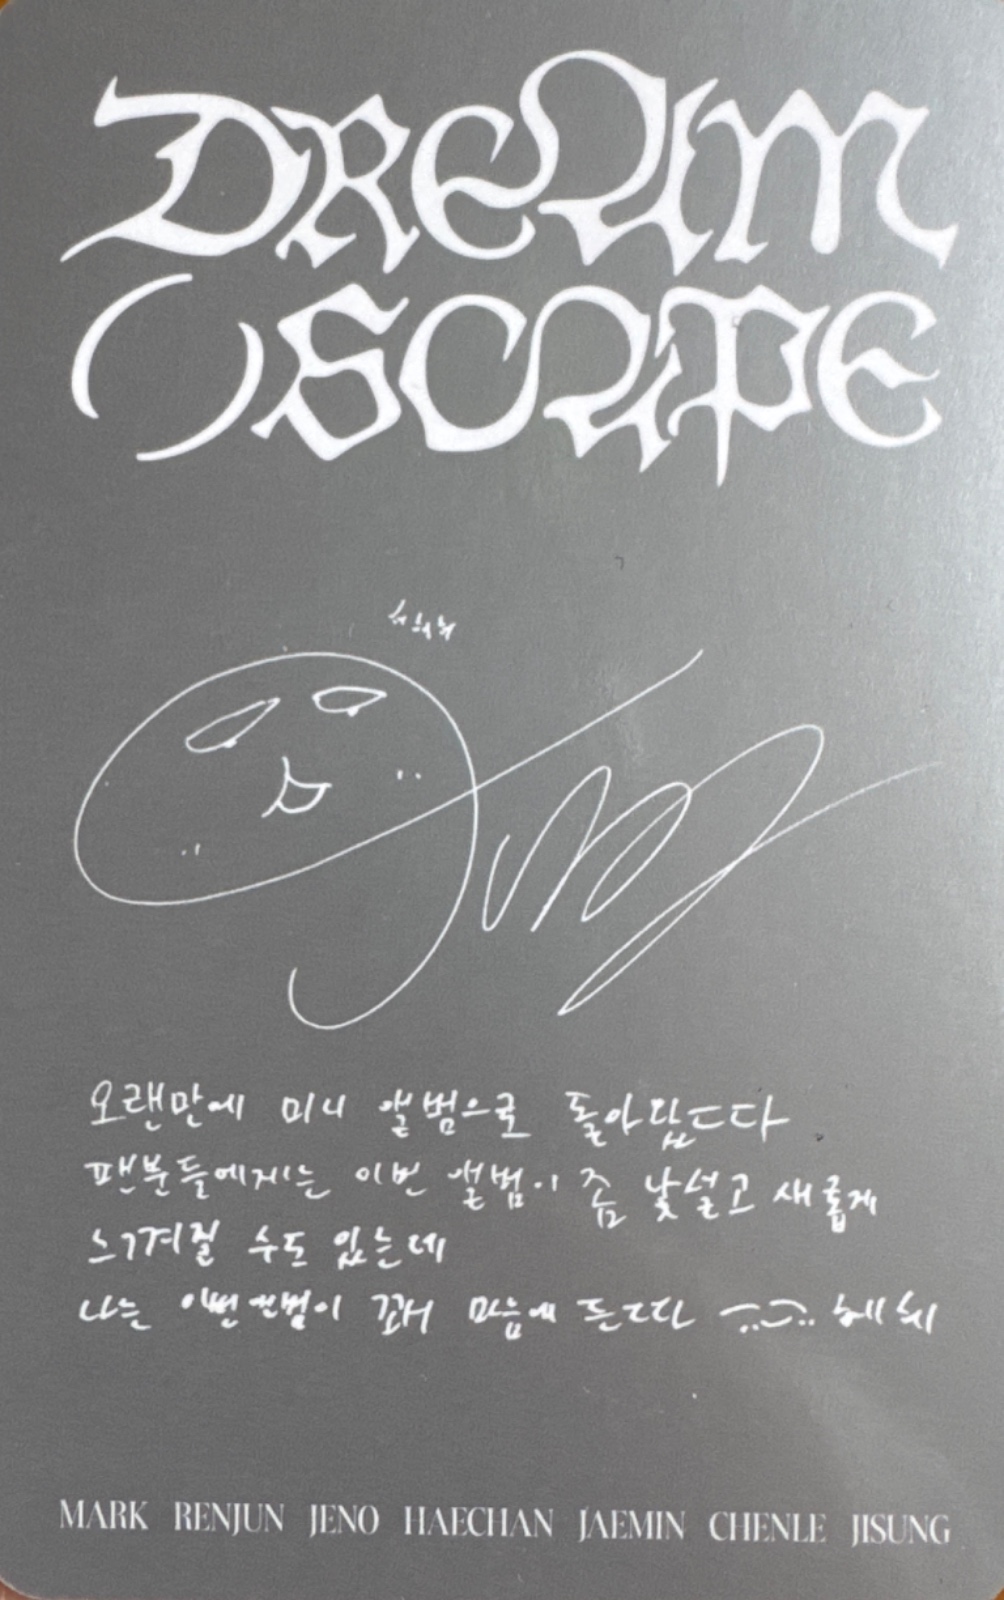 DREAM
( )SCAPE
오랜만에 미니 앨범으로 돌아왔드다
팬분들에게는 이번 앨범이 좀 낯설고 새롭게
느껴질 수도 있는데
나는 이번앨범이 꽤 마음에 든드다
MARK RENJUN JENO HAECHAN JAEMIN CHENLE JISUNG